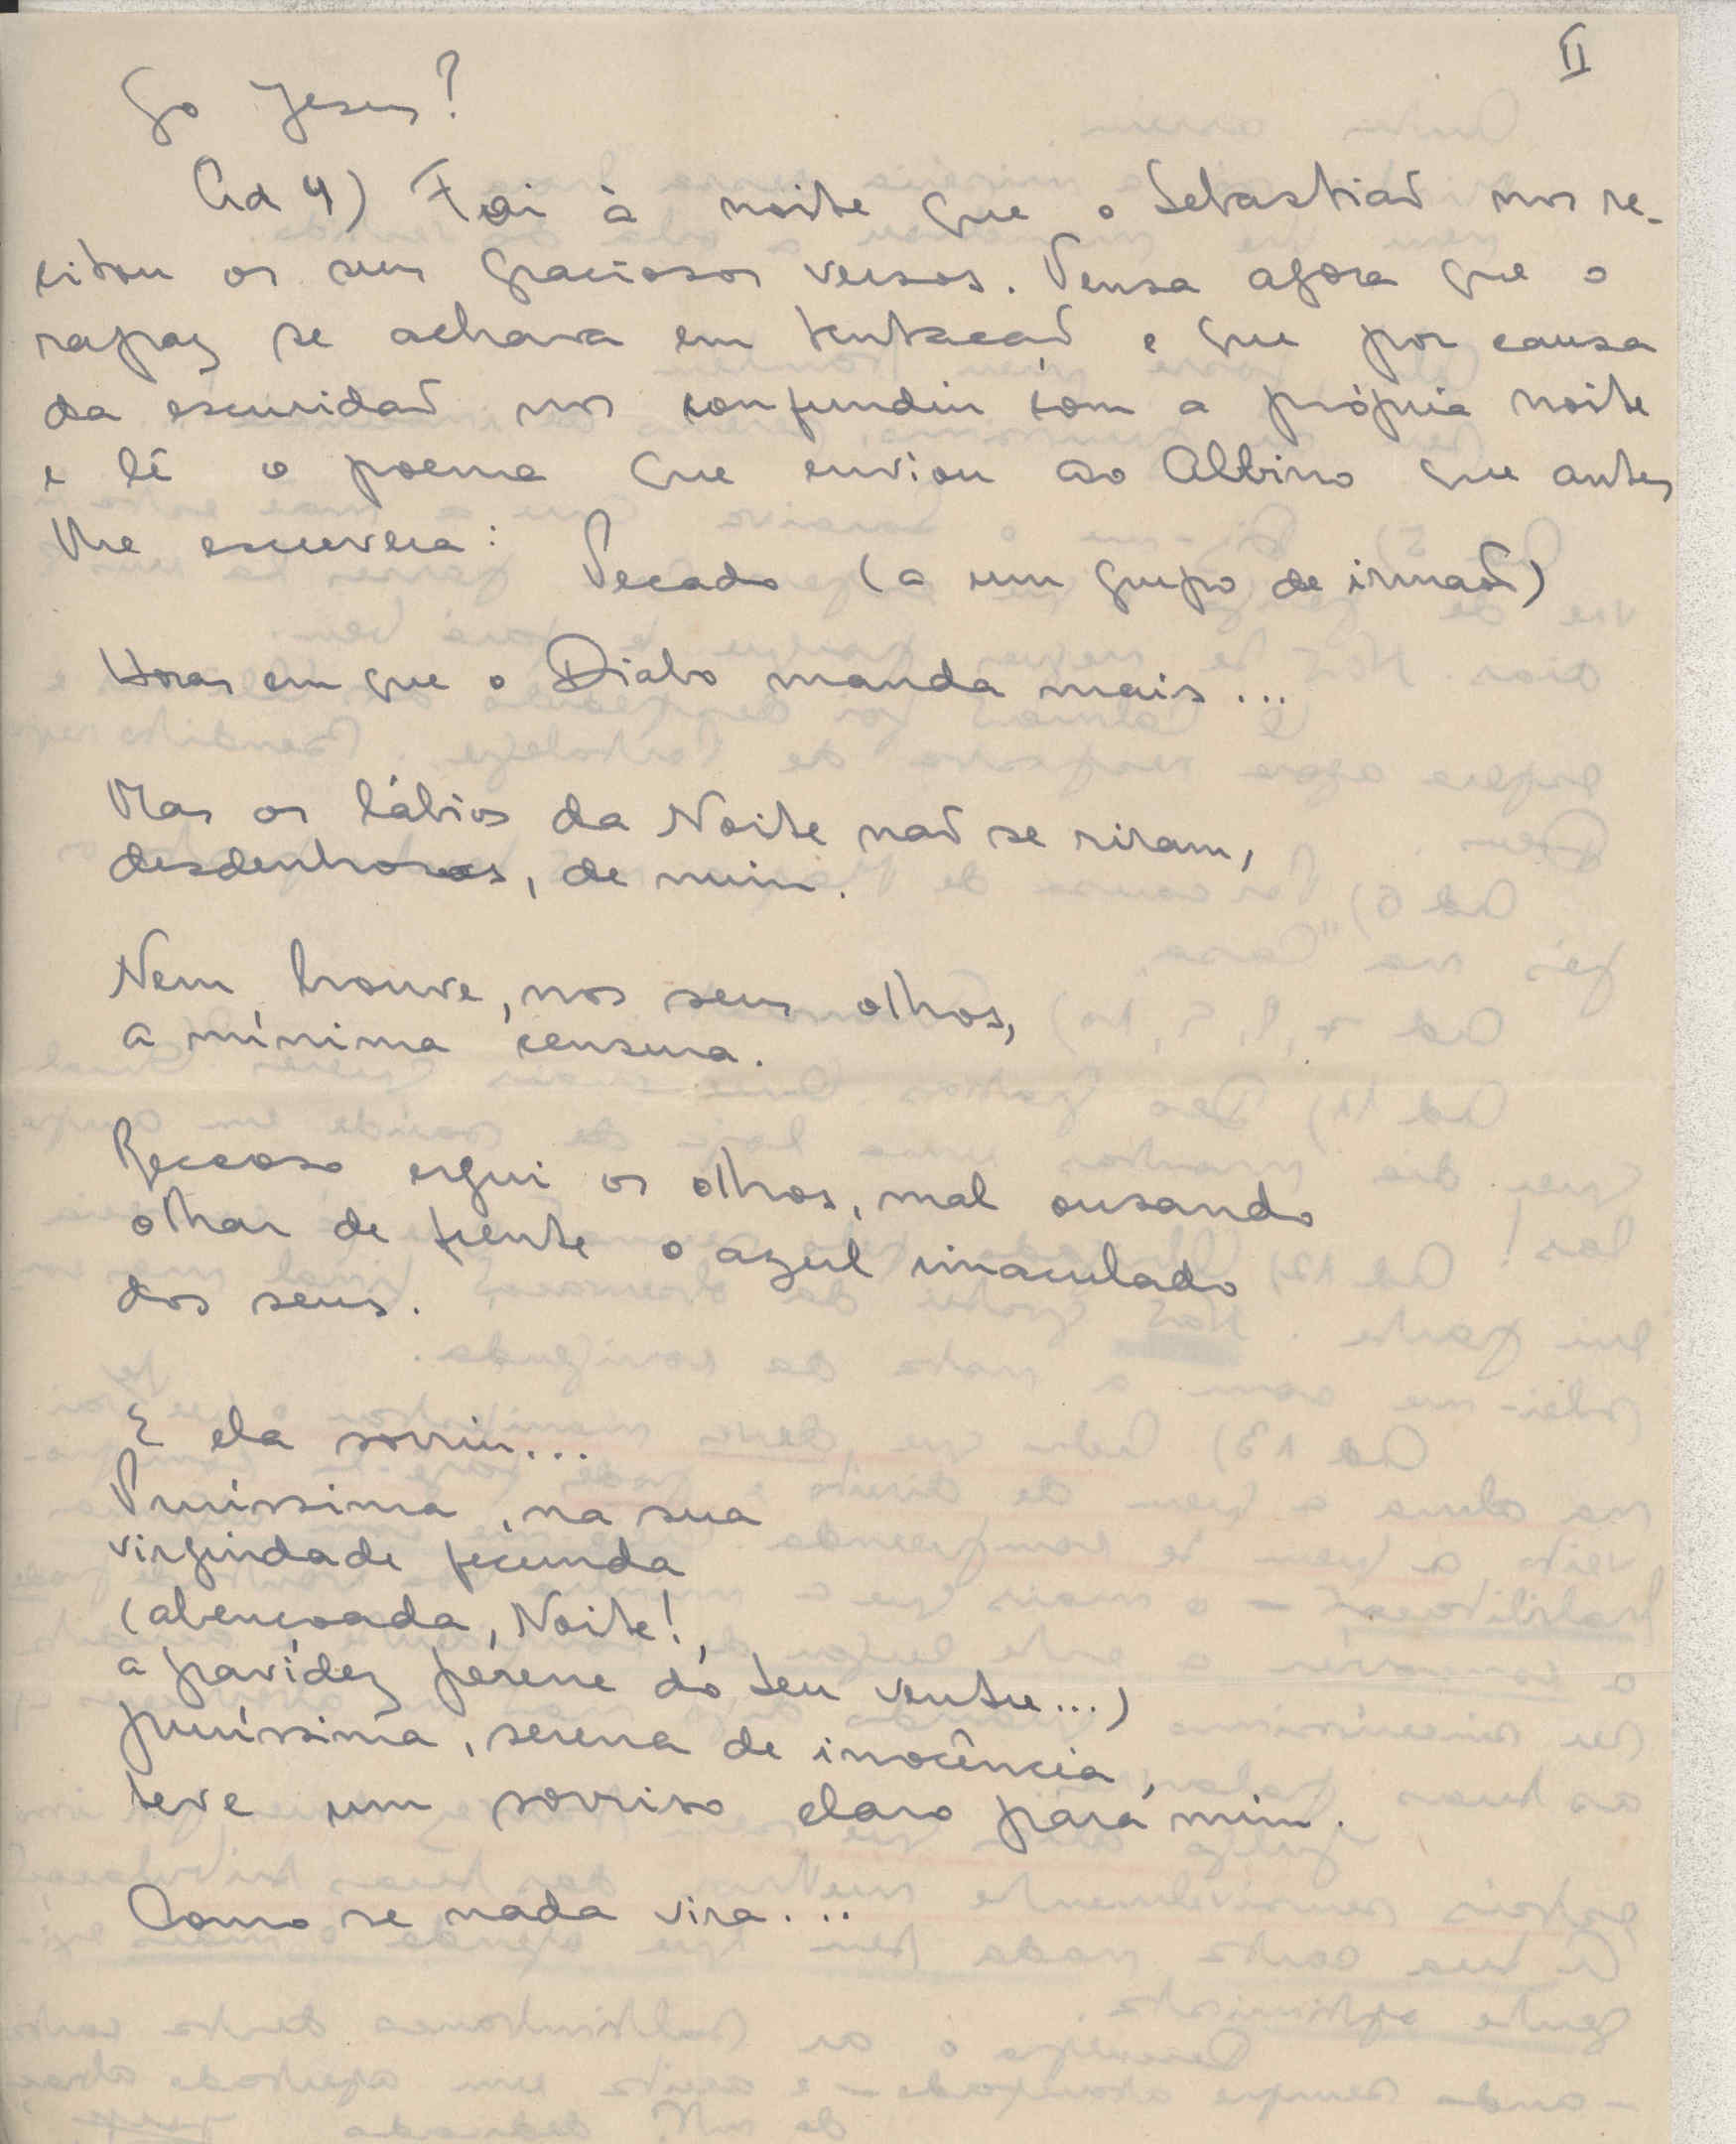 II
So Jesus?
Ad 4) Foi à noite que o Sebastião nos re-
citou os seus graciosos versos. Pensa agora que o
rapaz se achava em tentacão e que por causa
da escuridão nos confundiu com a própria noite
e lê o poema que enviou ao Albino que antes
lhe escrevera:
Pecado (a um grupo de irmãos)
Horas em que o Diabo manda mais...
Mas os lábios da Noite não se riram,
desdenhosos, de mim.
Nem houve, nos seus olhos,
a mínima censura.
Receoso ergui os olhos, mal ousando
olhar de frente o azul imaculado
dos seus.
E ela sorriu...
Puríssima, na sua
virgindade fecunda
(abençoada, Noite!,
a gravidez perene do teu ventre...)
puríssima, serena de inocência,
teve um sorriso claro para mim.
Como se nada vira...